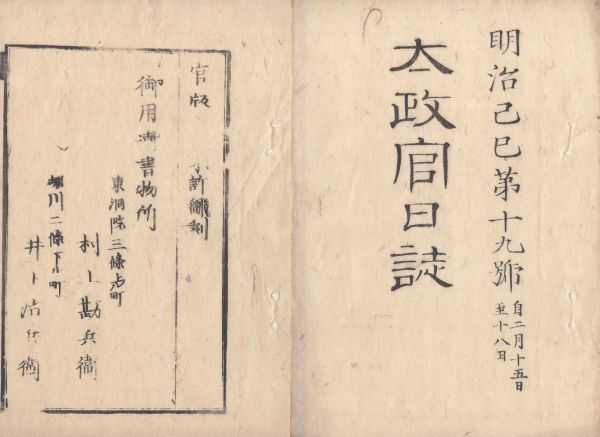 明治己巳第十九號
自二月十五日
至十八日
太政官日誌
官版 不許翻刻
御用御書物所
東洞院三條上ル町
村上勘兵衞
堀川二條下ル町
井上治兵衞